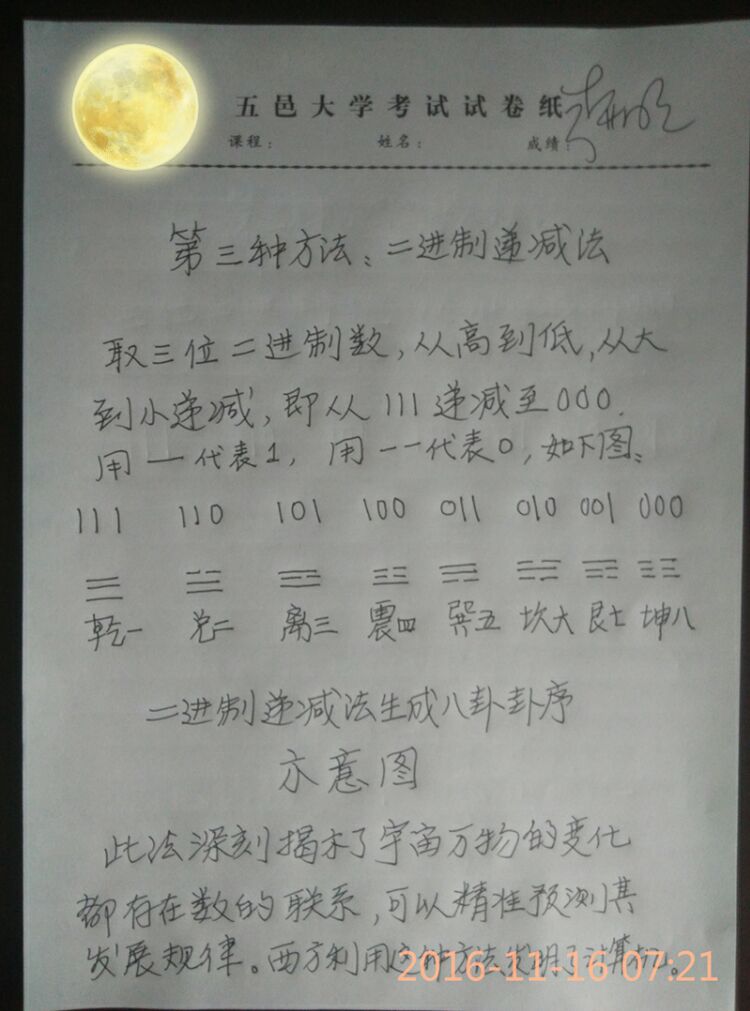 五邑大学考试试卷纸
课程： 姓名： 成绩：
第三种方法：二进制递减法
取三位二进制数，从高到低，从大
到小递减，即从111递减至000.
用一代表1，用--代表0，如下图：
111 110 101 100 011 010 001 000
☰ ☱ ☲ ☳ ☴ ☵ ☶ ☷
乾一 兑二 离三 震四 巽五 坎六 艮七 坤八
二进制递减法生成八卦卦序
示意图
此法深刻揭示了宇宙万物的变化
都存在数的联系，可以精准预测其
发展规律。西方利用这种方法发明了计算机。
2016-11-16 07:21